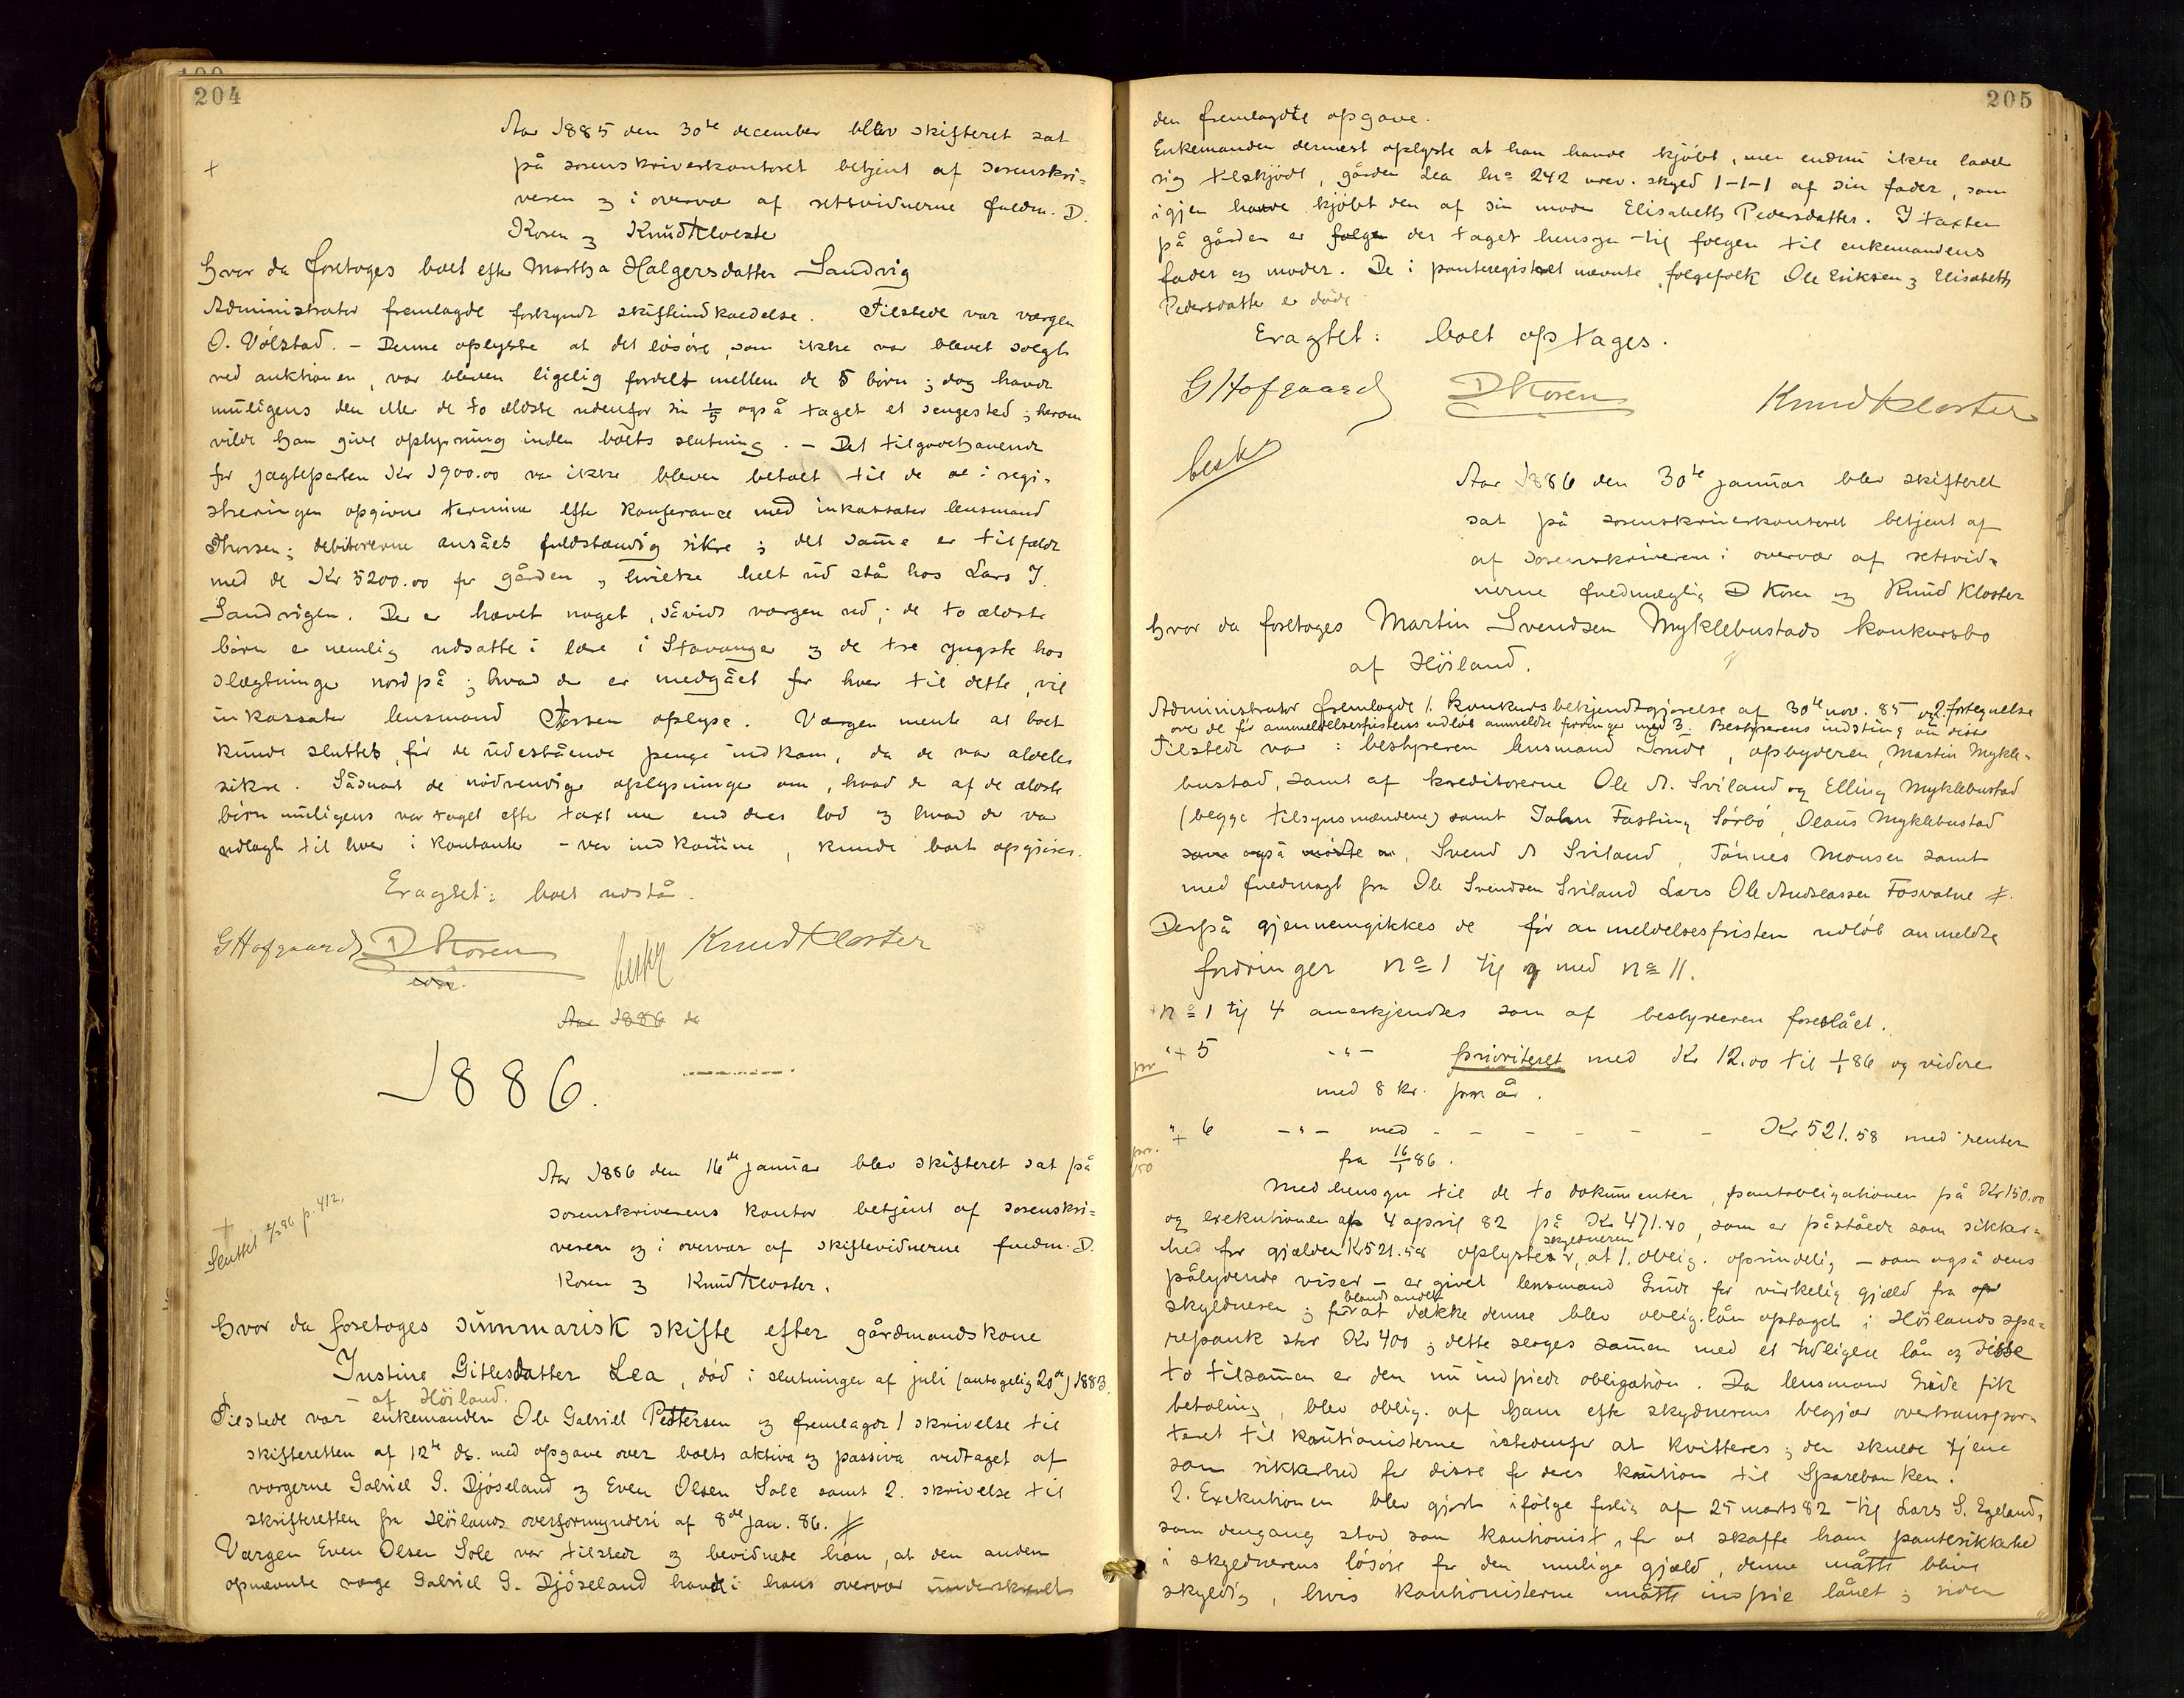 204
Aar 1885 den 30te december blev skifteret sat
på sorenskriverkontoret betjent af sorenskri=
veren og i overvær af retsvidnerne fuldm. D.
Koren og Knud Kloster
hvor da foretoges boet efter Martha Halgersdatter Sandvig
Administrator fremlagde forkyndt skifteindkaldelse. Tilstede var værgen
O. Vølstad. – Denne oplyste at det løsøre, som ikke var blevet solgt
ved auktionen, var bleven ligelig fordelt mellem de 5 børn; dog havde
muligens den eller de to ældste udenfor sin 1/5 også taget et sengested; herom
vilde han give oplysning inden boets slutning. – Det tilgodehavende
for jægteparten Kr 1900.00 var ikke bleven betalt til de i regi-
streringen opgivne termine efter konferance med inkassator lensmand
Thorsen; debitorerne ansåes fuldstændig sikre; det samme er tilfældt
med de Kr 5200.00 for gården, hvilke helt ud står hos Lars J.
Sandvigen. Der er hævet noget, såvidt værgen ved; de to ældste
børn er nemlig udsatte i lære i Stavanger og de tre yngste hos
slægtninge nordpå; hvad der er medgået for hver til dette, vil
inkassator lensmand Thorsen oplyse. Værgen mente at boet
kunde sluttes, før de udestående penge indkom, da de var aldeles
sikre. Såsnart de nødvendige oplysninger om, hvad der af de ældste
børn muligens var taget efter taxt mer end deres lod og hvad der var
udlagt til hver i kontanter – var indkomne, kunde boet opgjøres.
Eragtet: boet udstår.
GHofgaard DKoren Knud Kloster
besk
Aar 1886 de
1886.
Aar 1886 den 16de januar blev skifteret sat på
sorenskriverens kontor betjent af sorenskri=
veren og i overvær af skiftevidnerne fuldm. D.
Koren og Knud Kloster.
Sluttet 2/2 86 p. 412.
hvor da foretoges summarisk skifte efter gårdmandskone
Justine Gitlesdatter Lea, død i slutningen af juli (antagelig 20de) 1883
– af Høiland.
Tilstede var enkemanden Ole Gabriel Pedersen og fremlagde 1 skrivelse til
skifteretten af 12te ds. med opgave over boets aktiva og passiva vedtaget af
værgerne Gabriel G. Djøseland og Even Olsen Sole samt 2. skrivelse til
skifteretten fra Høilands overformynderi af 8de jan. 86.
Værgen Even Olsen Sole var tilstede og bevidnede han, at den anden
opnævnte værge Gabriel G. Djøseland havde i hans overvær underskrevet
205
den fremlagdte opgave.
Enkemanden dernæst oplyste at han havde kjøbt, men endnu ikke ladet
sig tilskjøde, gården Lea Lno 242 urev. skyld 1-1-1 af sin fader, som
igjen havde kjøbt den af sin moder Elisabeth Pedersdatter. I taxten
på gården er folge der taget hensyn til folgen til enkemandens
fader og moder. De i panteregistret nævnte folgefolk Ole Eriksen og Elisabeth
Pedersdatter er døde
Eragtet: boet optages.
GHofgaard DKoren Knud Kloster
besk
Aar 1886 den 30te januar blev skifteret
sat på sorenskriverkontoret betjent af
af sorenskriveren i overvær af retsvid=
nerne fuldmægtig D Koren og Knud Kloster
hvor da foretoges Martin Svendsen Myklebustads konkursbo
af Høiland.
Administrator fremlagde 1. konkursbekjendtgjørelse af 30te nov. 85 og 2. fortegnelse
over de før anmeldelsesfristens udløb anmeldte fordringer med 3. Bestyrerens indstilling om disse
Tilstede var: bestyreren lensmand Gude, opbyderen, Martin Mykle-
bustad, samt af kreditorerne Ole A. Sviland og Elling Myklebustad
(begge tilsynsmændene) samt John Fasting Sørbø, Olaus Myklebustad
som også mødte, Svend A Sviland, Tønnes Monsen samt
med fuldmagt fra Ole Svendsen Sviland Lars Ole Andreassen Fosvatne
Derpå gjennemgikkes de før anmeldelsesfristen udløb anmeldte
fordringer no 1 til og med no 11.
no 1 til 4 anerkjendtes som af bestyreren foreslået.
" 5 -"- prioriteret med Kr 12.00 til 1/1 86 og videre
pr
med 8 kr. pr. år.
" 6 -"- med - - - - - - Kr 521.58 med renter
pr. 150
fra 16/1 86.
Med hensyn til de to dokumenter, pantobligationen på Kr 150.00
og exekutionen af 4 april 82 på Kr 471.40, som er påståede som sikker-
hed for gjælden Kr 521.58 oplyste skyldneren, at 1. oblig. oprindelig – som også dens
pålydende viser – er givet lensmand Gude for virkelig gjæld fra
skyldneren; for blandt andet at dække denne blev oblig. lån optaget i Høilands spa=
rebank stor Kr 400; dette sloges sammen med et tidligere lån og disse
to tilsammen er den nu indfriede obligation. Da lensmand Gude fik
betaling, blev oblig. af ham efter skyldnerens begjær overtranspor-
teret til kautionisterne istedenfor at kvitteres; den skulde tjene
som sikkerhed for disse for deres kaution til Sparebanken.
2. Exekutionen blev gjort ifølge forlig af 25 marts 82 til Lars S. Egeland,
som dengang stod som kautionist, for at skaffe ham pantesikkerhed
i skyldnerens løsøre for den mulige gjæld, denne måtte blive
skyldig, hvis kautionisterne måtte indfrie lånet; siden